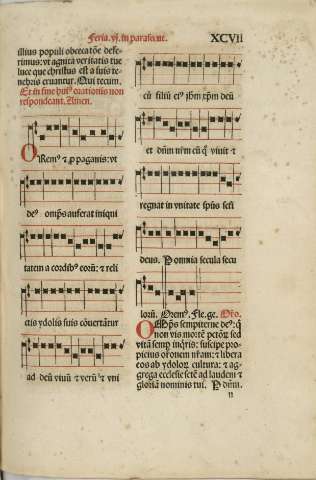 Feria. vj. in parasceue. XCVII
illius populi obcecatiõe defe-
rimus: vt agnita veritatis tue
luce que christus est a suis te-
nebris eruantur. Qui tecum.
Et in fine huiꝰ orationis non
respondeant. Amen.
ORemꝰ ⁊ ꝓ paganis: vt
deꝰ omp̃s auferat iniqui
tatem a cordibꝰ eorũ: ⁊ reli
ctis ydolis suis cõuertãtur
ad deũ viuũ ⁊ verũ: ⁊ vni
cũ filiũ eiꝰ jhm̃ xp̃m deũ
et dñm nr̃m cũ q̃ viuit ⁊
regnat in vnitate sp̃us sc̃ti
deus. P omnia secula secu
lorũ. Oremꝰ. Fle. ge. Oro.
OMp̃s sempiterne deꝰ: q̃
non vis mortẽ pctõꝝ sed
vitã semꝑ inq̃ris: suscipe pro-
picius or̃onem nr̃am: ⁊ libera
eos ab ydoloꝝ cultura: ⁊ ag-
grega ecclesie sctẽ ad laudem ⁊
gloriã nominis tui. P dñm.